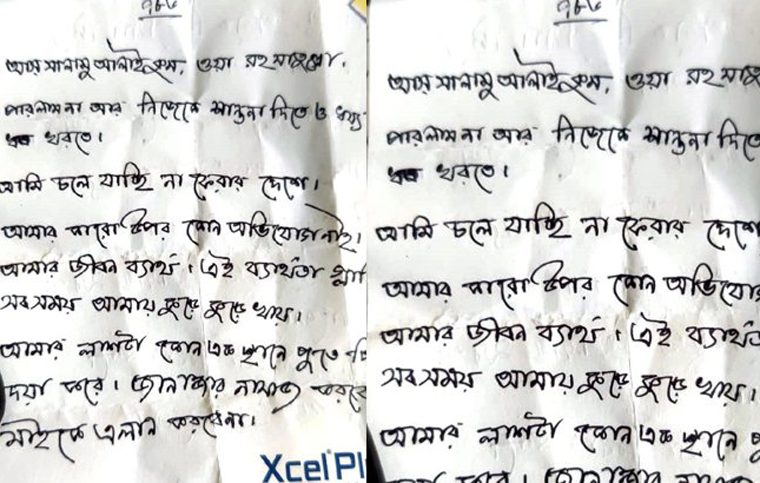 ৭৮৬
আস সালামু আলাইকুম, ওয়া রহমাতুল্লা।
পারলাম না আর নিজেকে শান্তনা দিতে ও ধয্য
ধরতে।
আমি চলে যাচ্ছি না ফেরার দেশে।
আমার কারো উপর কোন অভিযোগ নাই।
আমার জীবন ব্যার্থ। এই ব্যার্থতা
সব সময় আমায় কুড়ে কুড়ে খায়।
আমার লাশটা কোন এক স্থানে পুতে
দয়া করে। জানাজার নামাজ করবে
মাইকে এলান করবেনা।
Xcel Pl
৭৮৬
আস সালামু আলাইকুম, ওয়া রহমাতু
পারলাম না আর নিজেকে শান্তনা দিতে
ধরতে।
আমি চলে যাচ্ছি না ফেরার দেশে
আমার কারো উপর কোন অভিযো
আমার জীবন ব্যার্থ। এই ব্যার্থত
সব সময় আমায় কুড়ে কুড়ে খায়।
আমার লাশটা কোন এক স্থানে